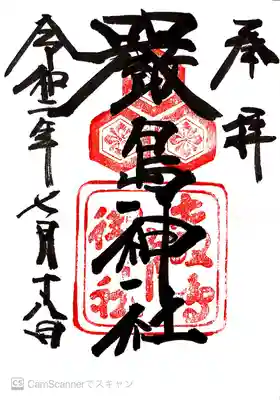 奉拝
嚴島神社
令和二年七月十八日
CS CamScannerでスキャン